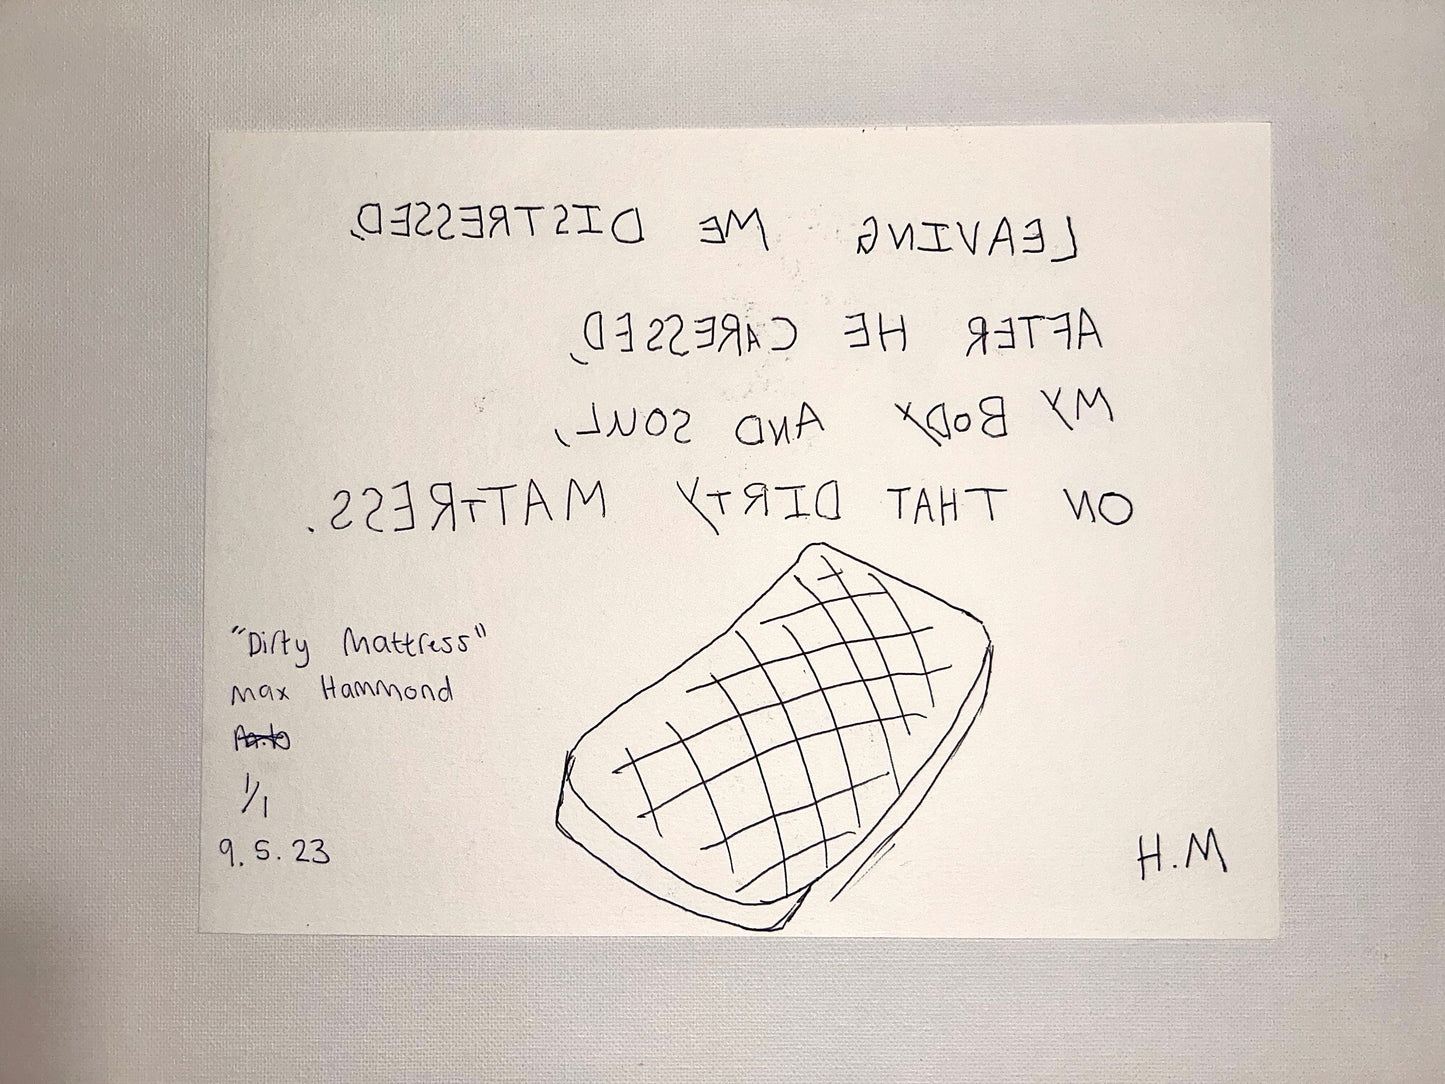 LEAVING ME DISTRESSED,
AFTER HE CARESSED,
MY BODY AND SOUL,
ON THAT DIRTY MATTRESS.
"Dirty Mattress"
Max Hammond
1/1
9.5.23
M.H